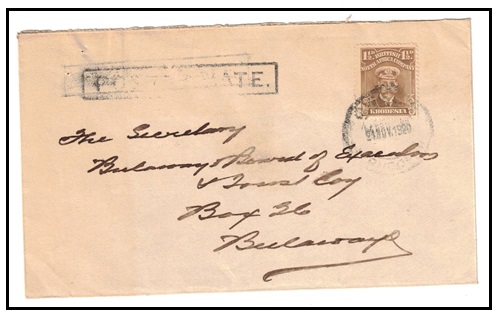 1½D 1½D
BRITISH
SOUTH AFRICA COMPANY
RHODESIA
POSTED LATE.
The Secretary
Bulawayo Board of Executors
& Trust Coy
Box 26
Bulawayo